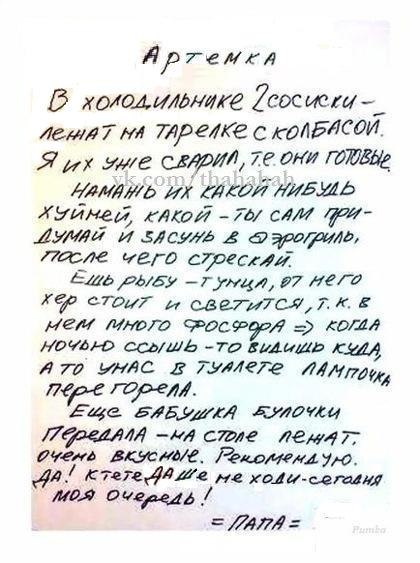 Артемка
В холодильнике 2 сосиски –
лежат на тарелке с колбасой.
Я их уже сварил, т.е. они готовые.
vk.com/thahahah
Намажь их какой нибудь
хуйней, какой – ты сам при-
думай и засунь в аэрогриль,
после чего стрескай.
Ешь рыбу – тунца, от него
хер стоит и светится, т.к. в
нем много фосфора => когда
ночью ссышь – то видишь куда,
а то у нас в туалете лампочка
перегорела.
Еще бабушка булочки
передала – на столе лежат.
очень вкусные. Рекомендую.
Да! К тете Даше не ходи – сегодня
моя очередь!
= ПАПА =
Pumba